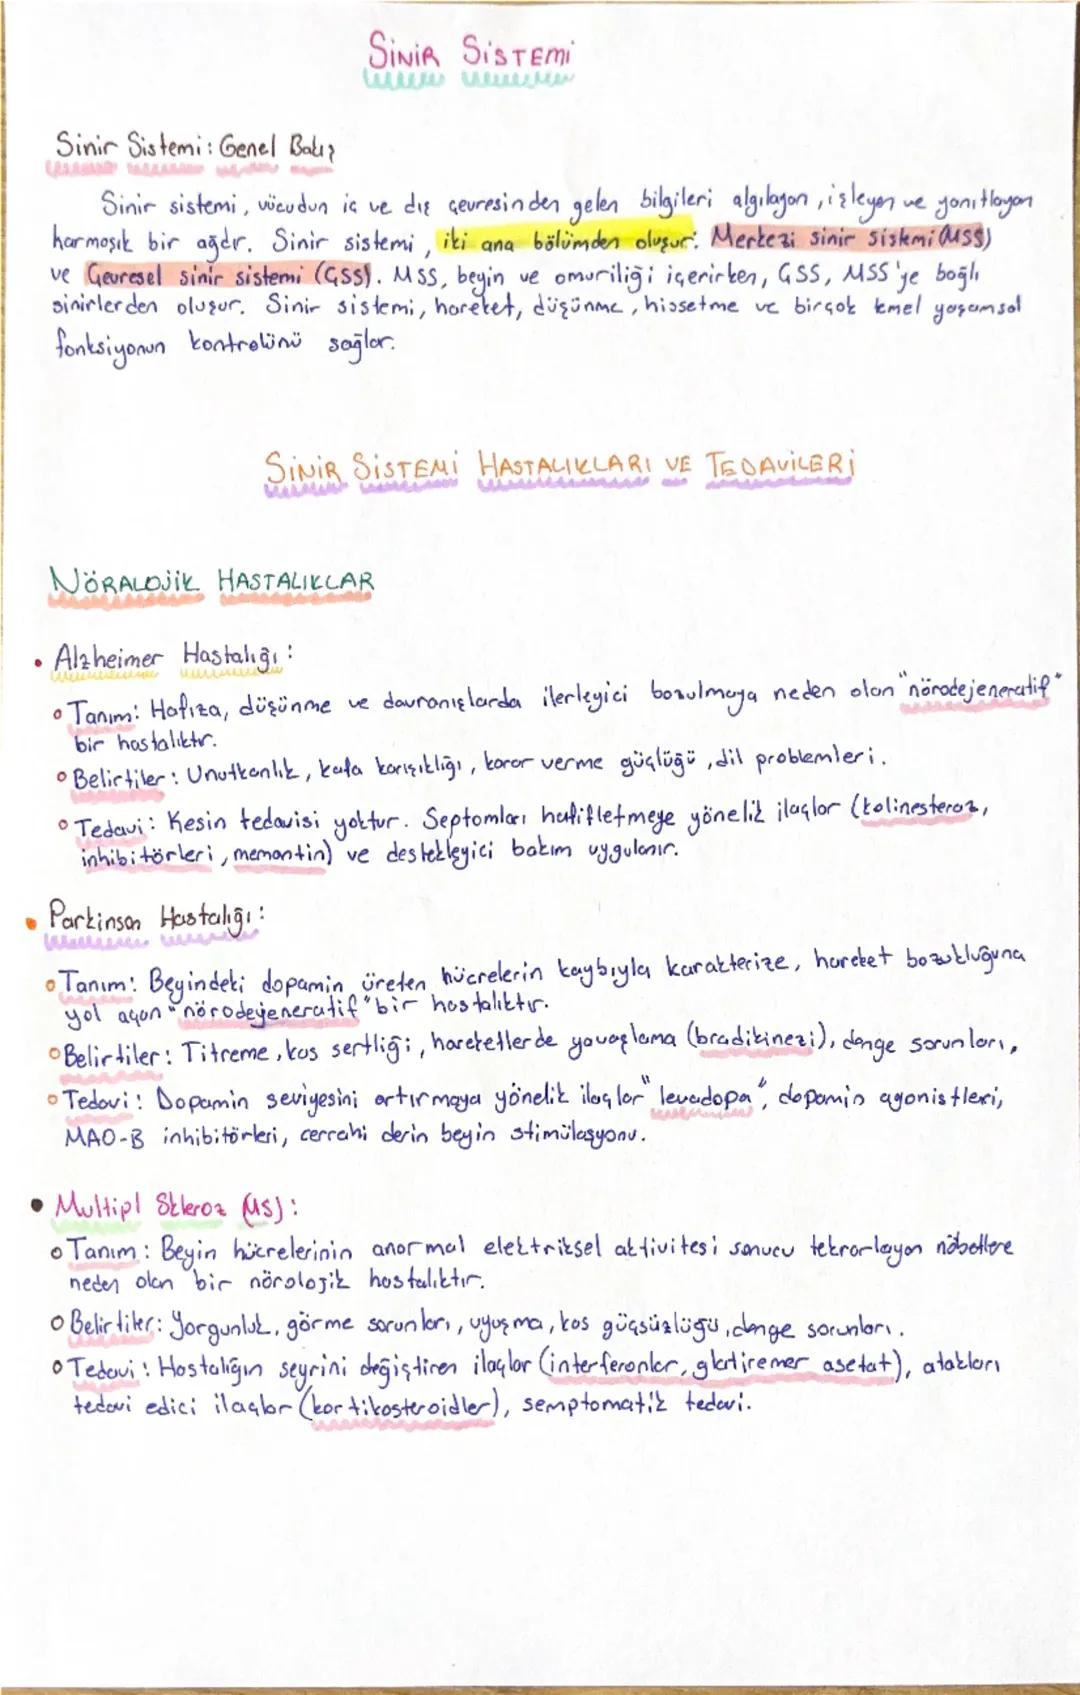 SİNİR SİSTEMİ
Sinir Sistemi: Genel Bakış
Sinir sistemi, vücudun iç ve dış çevresinden gelen bilgileri algılayan, işleyen ve yanıtlayan
karmaşık bir ağdır. Sinir sistemi, iki ana bölümden oluşur: Merkezi sinir sistemi (MSS)
ve Çevresel sinir sistemi (ÇSS). MSS, beyin ve omuriliği içerirken, ÇSS, MSS'ye bağlı
sinirlerden oluşur. Sinir sistemi, hareket, düşünme, hissetme ve birçok temel yaşamsal
fonksiyonun kontrolünü sağlar.
SİNİR SİSTEMİ HASTALIKLARI VE TEDAVİLERİ
NÖRALOJİK HASTALIKLAR
• Alzheimer Hastalığı:
o Tanım: Hafıza, düşünme ve davranışlarda ilerleyici bozulmaya neden olan "nörodejeneratif"
bir hastalıktır.
o Belirtiler: Unutkanlık, kafa karışıklığı, karar verme güçlüğü, dil problemleri.
o Tedavi: Kesin tedavisi yoktur. Septomları hafifletmeye yönelik ilaçlar (kolinesteraz,
inhibitörleri, memantin) ve destekleyici bakım uygulanır.
• Parkinson Hastalığı:
o Tanım: Beyindeki dopamin üreten hücrelerin kaybıyla karakterize, hareket bozukluğuna
yol açan "nörodejeneratif" bir hastalıktır.
o Belirtiler: Titreme, kas sertliği, hareketlerde yavaşlama (bradikinezi), denge sorunları,
o Tedavi: Dopamin seviyesini artırmaya yönelik ilaçlar "levadopa", dopamin agonistleri,
MAO-B inhibitörleri, cerrahi derin beyin stimülasyonu.
• Multipl Skleroz (MS):
o Tanım: Beyin hücrelerinin anormal elektriksel aktivitesi sonucu tekrarlayan nöbetlere
neden olan bir nörolojik hastalıktır.
o Belirtiler: Yorgunluk, görme sorunları, uyuşma, kas güçsüzlüğü, denge sorunları.
o Tedavi: Hastalığın seyrini değiştiren ilaçlar (interferonlar, glatiremer asetat), atakları
tedavi edici ilaçlar (kortikosteroidler), semptomatik tedavi.